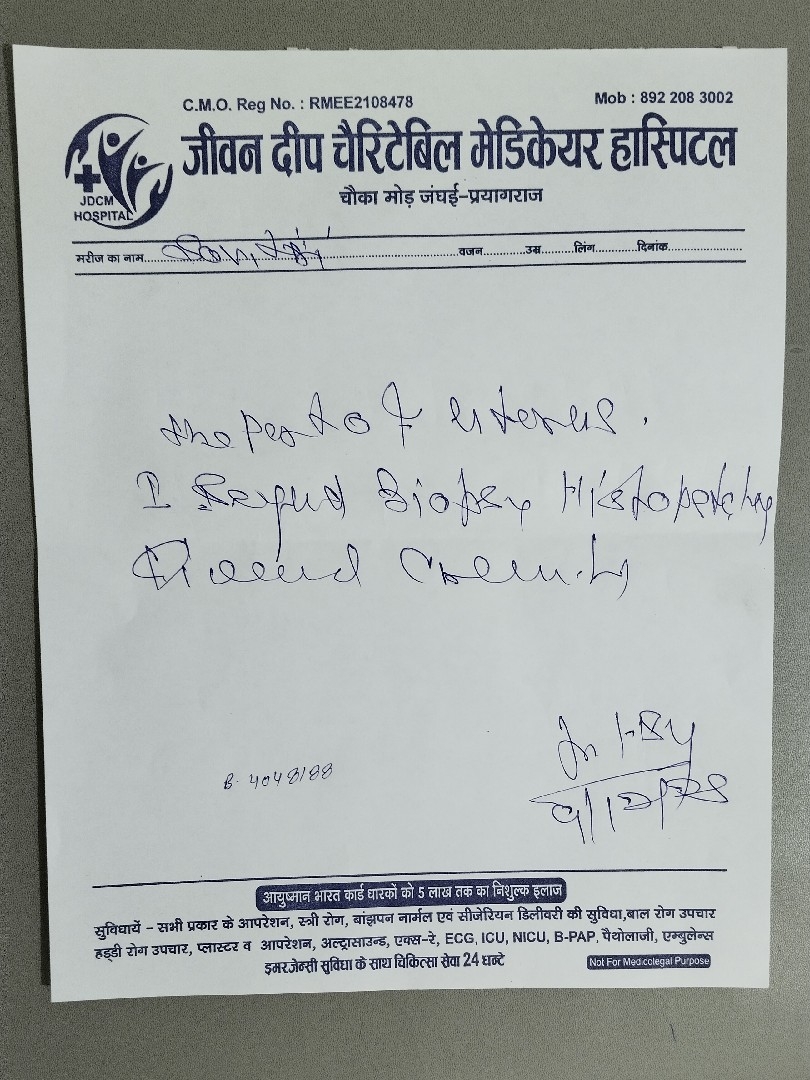 C.M.O. Reg No. : RMEE2108478
Mob : 892 208 3002
JDCM
HOSPITAL
जीवन दीप चैरिटेबिल मेडिकेयर हास्पिटल
चौका मोड़ जंघई-प्रयागराज
मरीज का नाम.......... वजन.............उम्र..........लिंग............दिनांक...................
of uterus.
I Biopsy
B. 4048188
आयुष्मान भारत कार्ड धारकों को 5 लाख तक का निशुल्क इलाज
सुविधायें - सभी प्रकार के आपरेशन, स्त्री रोग, बांझपन नार्मल एवं सीजेरियन डिलीवरी की सुविधा,बाल रोग उपचार
हड्डी रोग उपचार, प्लास्टर व आपरेशन, अल्ट्रासाउन्ड, एक्स-रे, ECG, ICU, NICU, B-PAP, पैथोलाजी, एम्बुलेन्स
इमरजेन्सी सुविधा के साथ चिकित्सा सेवा 24 घन्टे
Not For Medicolegal Purpose